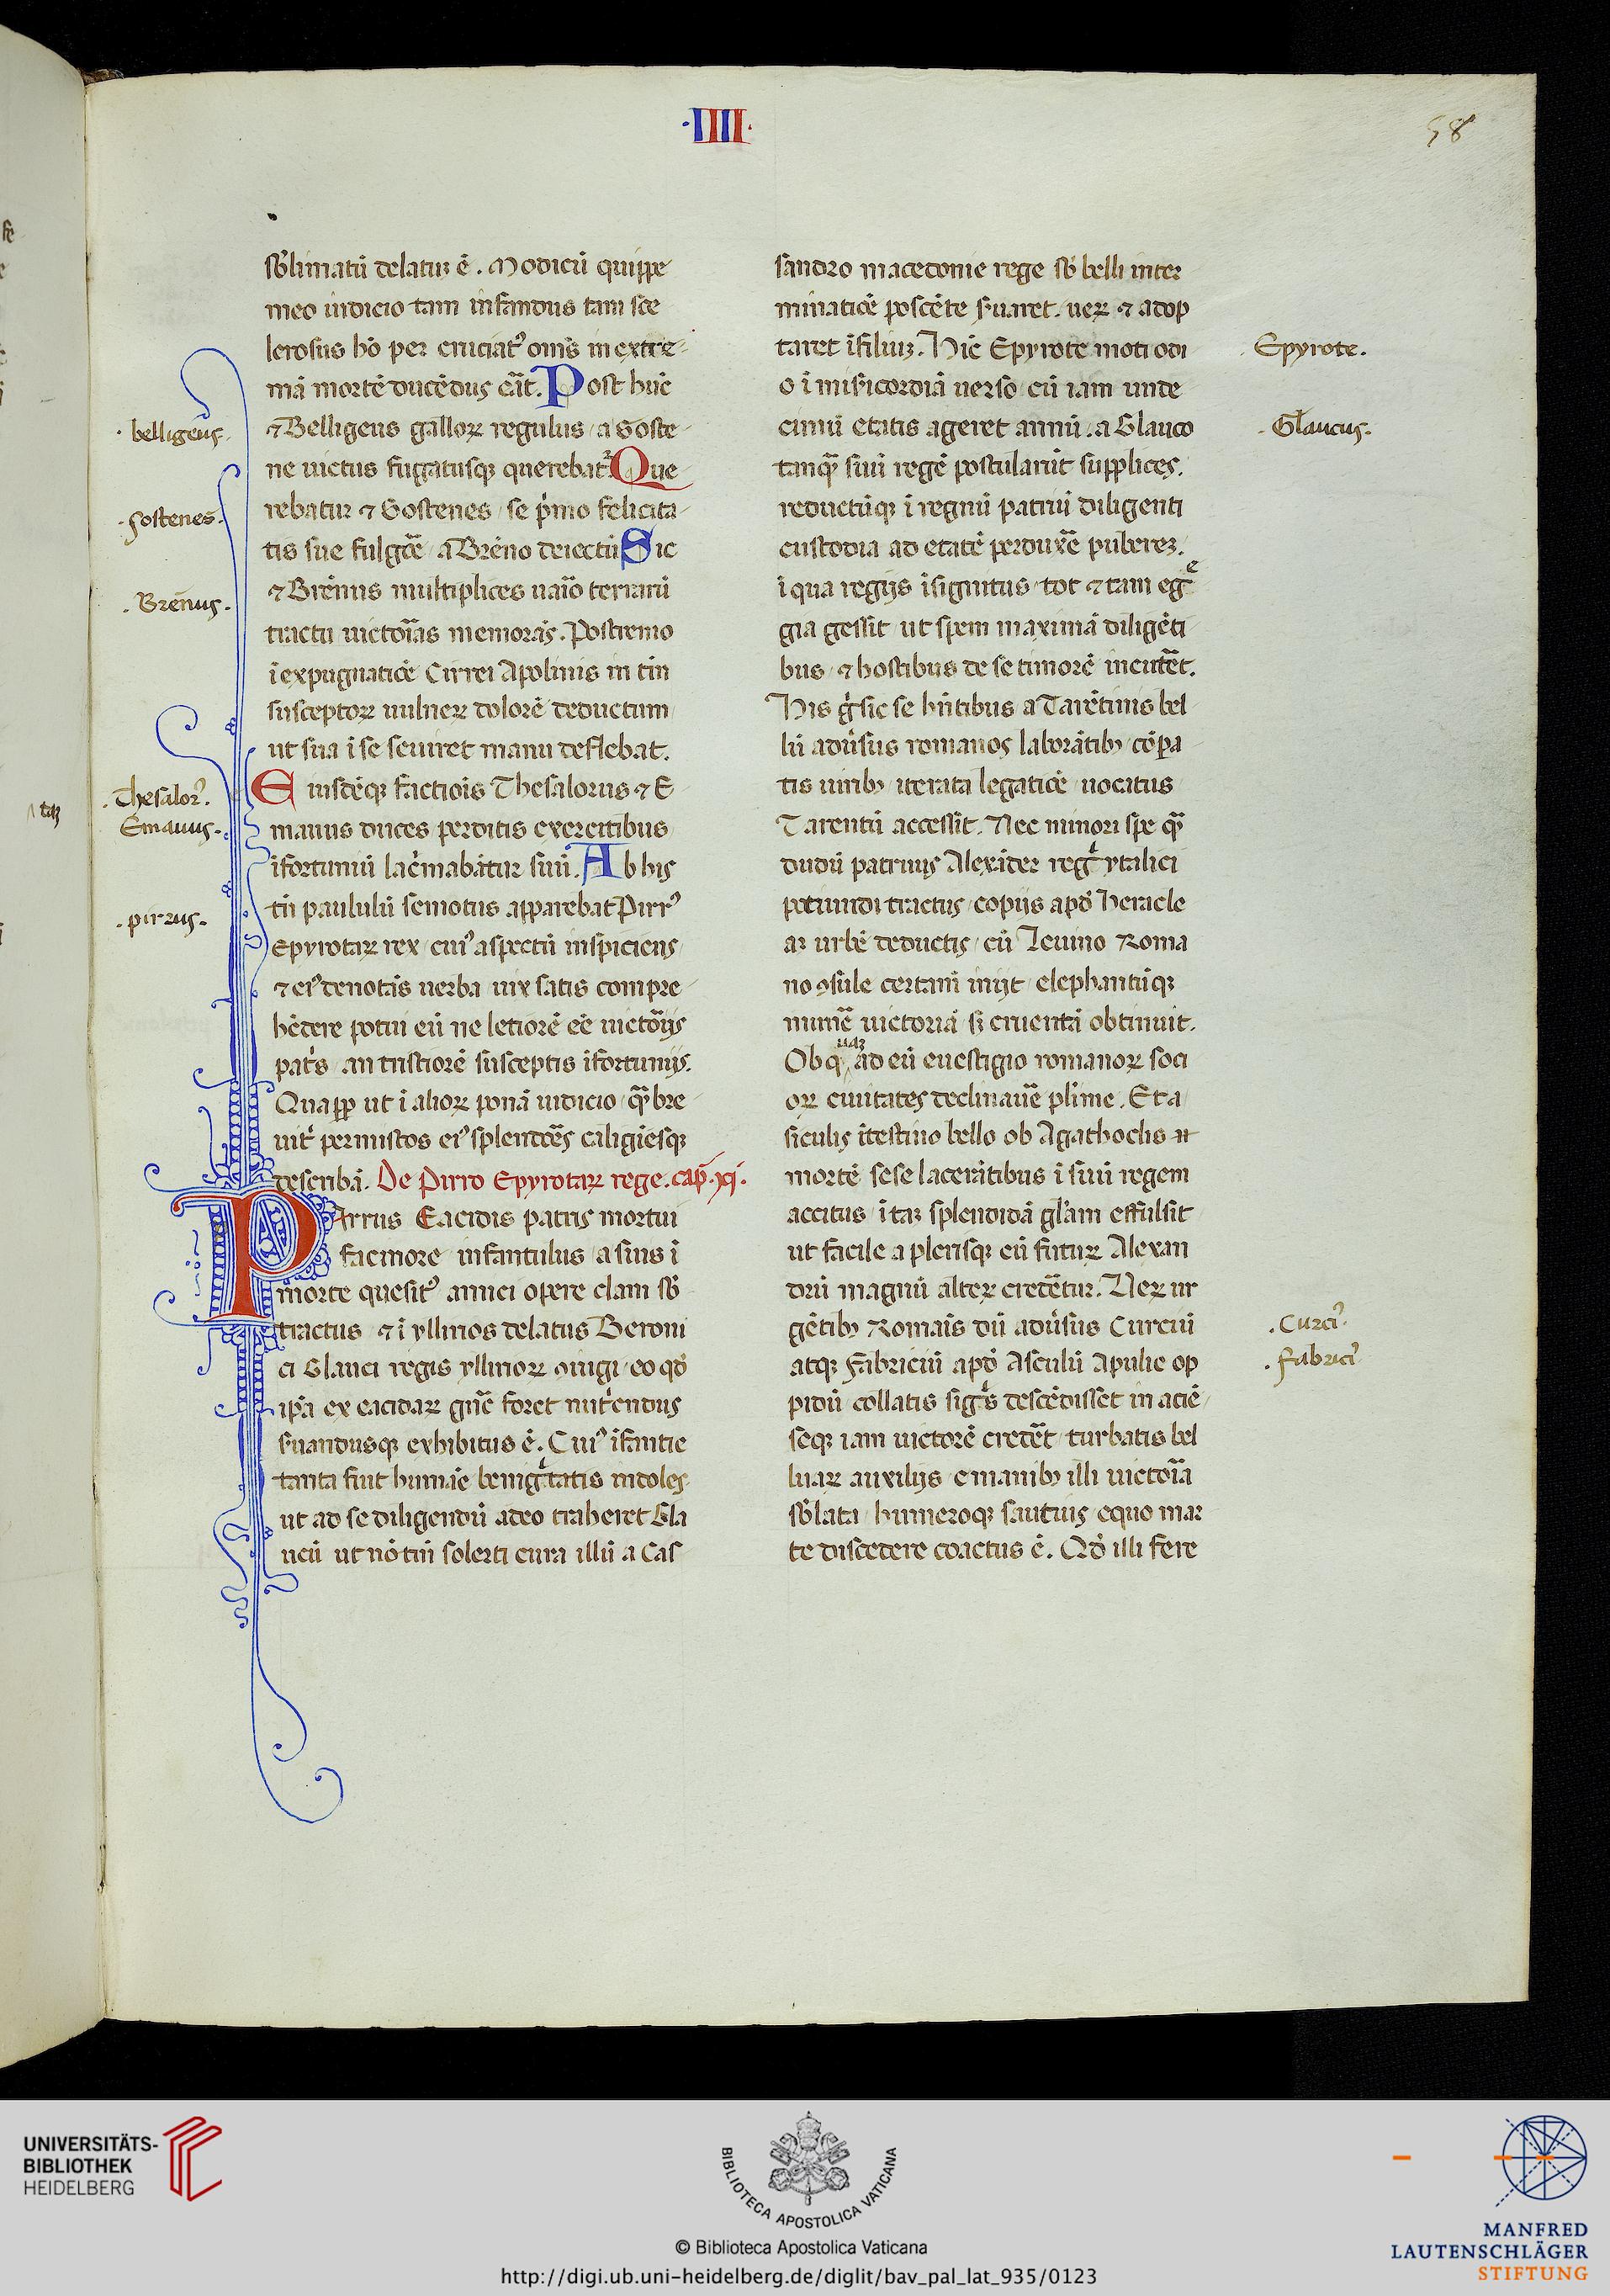 ·IIII·
58
sb̄limatū delatur ē. Modicū quippe
meo iudicio tam infandus tam sce
lerosus hō per cruciatꝰ om̄s in extre-
mā mortē ducēdus erāt. Post hūc
⁊ Belligeus galloꝝ regulus a Soste
ne uictus fugatusqꝫ querebat᷑. Que
rebatur ⁊ Sostenes se p̍mo felicita
tis sue fulgōre a Brēno deiectū. Sic
⁊ Brēnus multiplices uaīo terrarū
tractu uictoīas memorās. Postremo
ī expugnatiōe Cirrei Apolinis in tm̄
susceptoꝝ uulneꝝ dolorē deductum
ut sua ī se seuiret manu deflebat.
Eiusdēqꝫ factiōis Thesalorus ⁊ E
manus duces perditis exercitibus
īfortuniū lac̍mabātur suū. Ab his
tn̄ paululū semotus apparebat Pirrꝰ
Epyrotaꝝ rex cuiꝰ aspectū inspiciens
⁊ eiꝰ denotās uerba uix satis compre
hēdere potui eū ne letiorē eē uictoīis
pat̍s an tristiorē susceptis īfortunijs.
Quapp̄ ut ī alioꝝ ponā iudicio q̄ bre
uit᷑ permistos eiꝰ splendōes caligiēsqꝫ
describā. De Pirro Epyrotaꝝ rege. cap̄. xj.
Pirrus Eacidis patris mortui
facinore infantulus a suis ī
morte quesitꝰ amici opere clam sb̄
tractus ⁊ ī yllirios delatus Beroni
ci Glauci regis yllirioꝝ ꝯiugi eo qd̄
ip̄a ex eacidaꝝ gn̄e foret nut̍endus
s̄uandusqꝫ exhibitus ē. Cuiꝰ īfantie
tanta fuit humāe benig̍tatis indoles
ut ad se diligendū adeo traheret Gla
ucū ut nō tm̄ solerti cura illū a Cas
sandro macedonie rege sb̄ belli inter
minatiōe poscēte s̄uaret. ueꝝ ⁊ adop
taret ī filiuꝫ. Hīc Epyrote moti odi
o ī misericordiā uerso cū iam unde
cimū etatis ageret annū. a Glauco
tanq̄ suū regē postularūt supplices.
reductūqꝫ ī regnū patriū diligenti
custodia ad etatē perduxēre puberez.
ī qua regijs īsignitus tot ⁊ tam eg᷑
gia gessit ut spem maximā diligēti
bus ⁊ hostibus de se timorē incutēret.
His g̍ sic se hn̄tibus a Tarētinis bel
lū adūsus romanos laborātibꝫ cōpa
tis uiribꝫ iterata legatiōe uocitus
Tarentū accessit. Nec minori spe q̄
dudū patruus Alexāder reg̍ ytalici
potiundi tractus copijs apd̄ Heracle
aꝫ urbē deductis cū Leuino Roma
no ꝯsule certamē inijt elephantūqꝫ
munēre uictoriā sꝫ cruentā obtinuit.
Ob q̄ uaꝫ ad eū euestigio romanoꝝ soci
oꝝ ciuitates declinauē plīme. Et a
siculis ītestino bello ob Agathoclis
mortē sese lacerātibus ī suū regem
accitus ī taꝫ splendidā gl̄am effulsit
ut facile a plerisqꝫ eū futuꝝ Alexan
drū magnū alteꝝ credēretur. Veꝝ ur
gētibꝫ Romāis dū adūsus Curciū
atqꝫ Fabriciū apd̄ Asculū Apulie op
pidū collatis sig̍s descēdisset in aciē
seqꝫ iam uictorē credēt turbatis bel
luaꝝ auxilijs e manibꝫ illi uictoīa
sb̄lata humeroqꝫ sautius equo mar
te discedere coactus ē. Qd̄ illi fere
· belligeus.
·sostenes.
. Brēnus.
.Thesalorꝰ.
Emanus.
.pirrus.
Epyrote.
. Glaucus.
.Curciꝰ.
.fabriciꝰ
UNIVERSITÄTS-
BIBLIOTHEK
HEIDELBERG
BIBLIOTECA APOSTOLICA VATICANA
© Biblioteca Apostolica Vaticana
http://digi.ub.uni-heidelberg.de/diglit/bav_pal_lat_935/0123
MANFRED
LAUTENSCHLÄGER
STIFTUNG